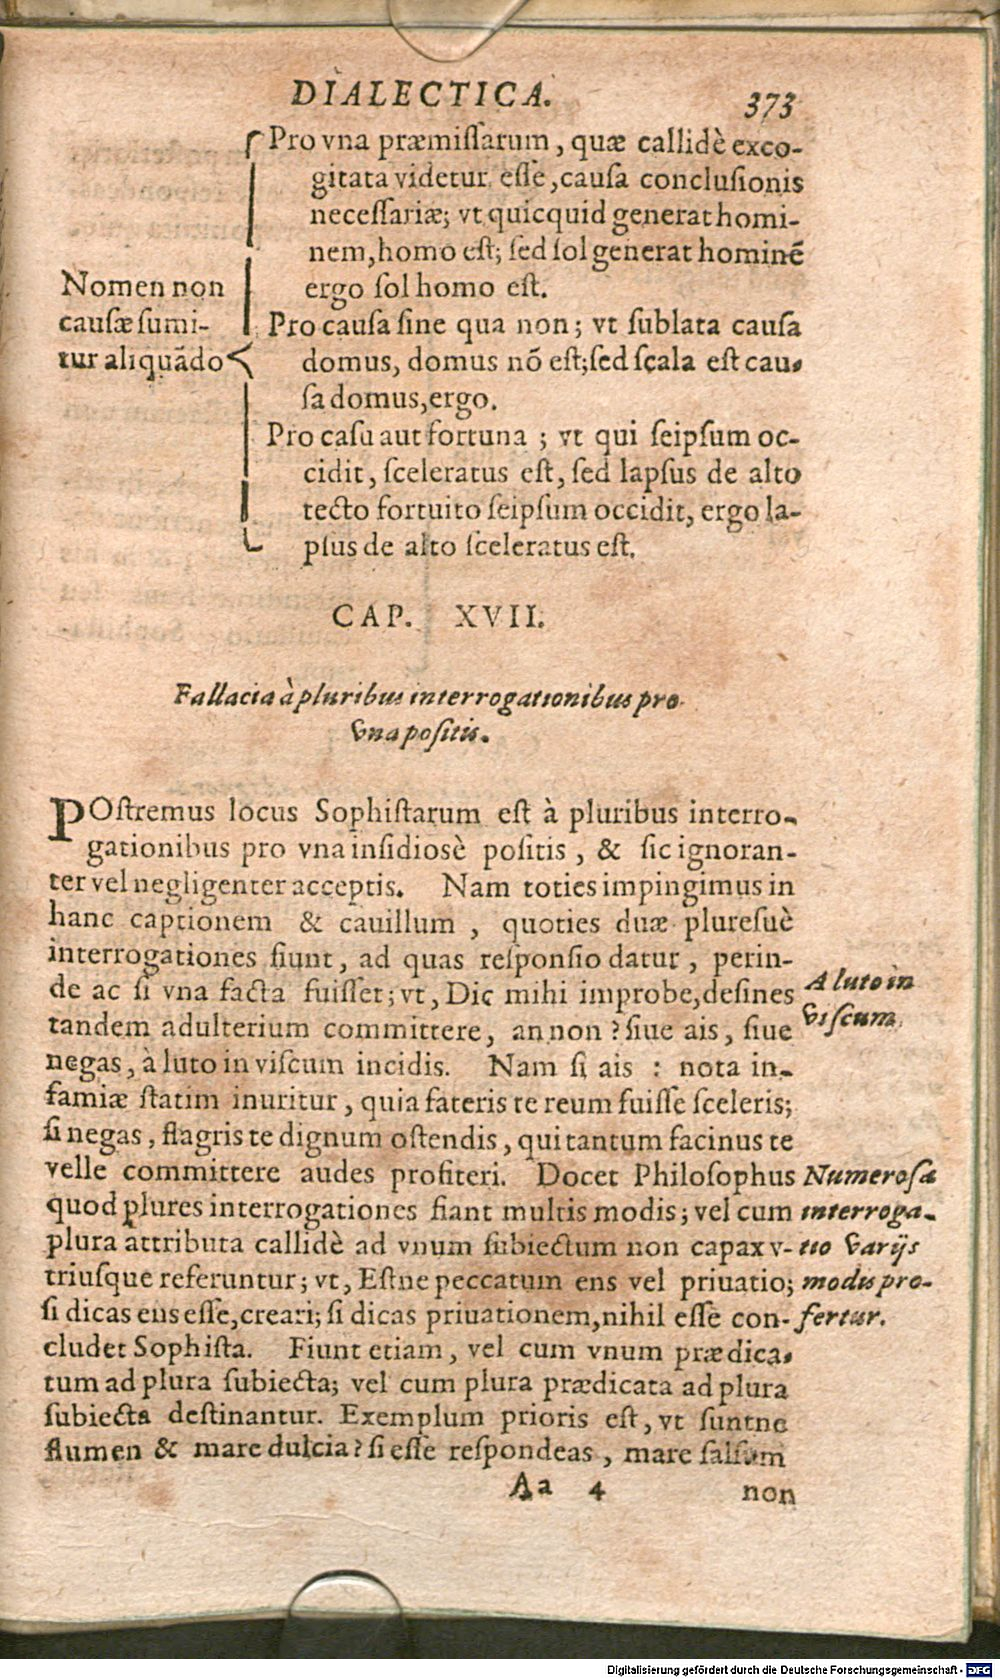 DIALECTICA. 373
Pro vna præmiſſarum, quæ callidè exco-
gitata videtur eſſe, cauſa concluſionis
neceſſariæ; vt quicquid generat homi-
nem, homo eſt; ſed ſol generat hominẽ
ergo ſol homo eſt.
Nomen non
cauſæ ſumi-
tur aliquãdo
Pro cauſa ſine qua non; vt ſublata cauſa
domus, domus nõ eſt; ſed ſcala eſt cau-
ſa domus, ergo.
Pro caſu aut fortuna; vt qui ſeipſum oc-
cidit, ſceleratus eſt, ſed lapſus de alto
tecto fortuito ſeipſum occidit, ergo la-
pſus de alto ſceleratus eſt.
CAP. XVII.
Fallacia à pluribus interrogationibus pro
vna poſitis.
POſtremus locus Sophiſtarum eſt à pluribus interro-
gationibus pro vna inſidiosè poſitis, & ſic ignoran-
ter vel negligenter acceptis. Nam toties impingimus in
hanc captionem & cauillum, quoties duæ pluresuè
interrogationes fiunt, ad quas reſponſio datur, perin-
de ac ſi vna facta fuiſſet; vt, Dic mihi improbe, deſines
tandem adulterium committere, an non? ſiue ais, ſiue
negas, à luto in viſcum incidis. Nam ſi ais: nota in-
famiæ ſtatim inuritur, quia fateris te reum fuiſſe ſceleris;
ſi negas, flagris te dignum oſtendis, qui tantum facinus te
velle committere audes profiteri. Docet Philoſophus
quod plures interrogationes fiant multis modis; vel cum
plura attributa callidè ad vnum ſubiectum non capax v-
triuſque referuntur; vt, Eſtne peccatum ens vel priuatio;
ſi dicas ens eſſe, creari; ſi dicas priuationem, nihil eſſe con-
cludet Sophiſta. Fiunt etiam, vel cum vnum prædica-
tum ad plura ſubiecta; vel cum plura prædicata ad plura
ſubiecta deſtinantur. Exemplum prioris eſt, vt ſuntne
flumen & mare dulcia? ſi eſſe reſpondeas, mare ſalſum
A luto in
viſcum.
Numeroſa
interroga-
tio varijs
modis pro-
fertur.
Aa 4 non
Digitalisierung gefördert durch die Deutsche Forschungsgemeinschaft - DFG